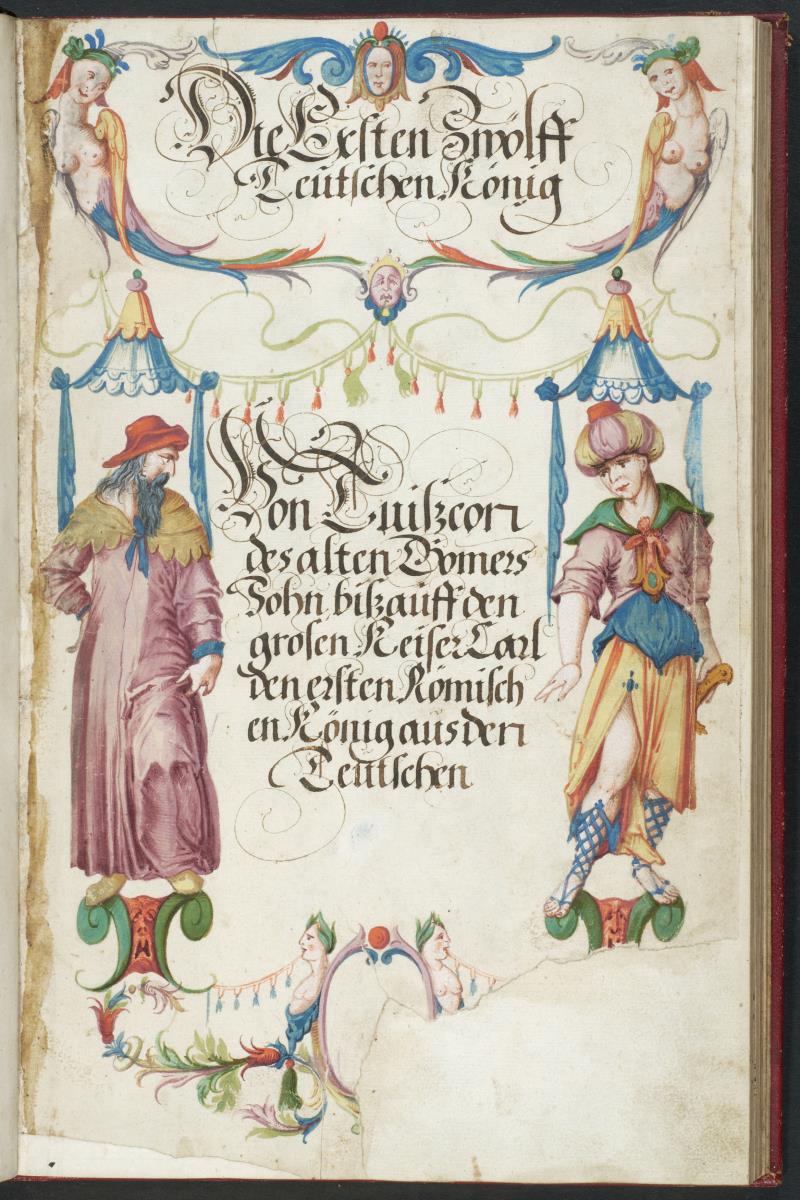 Die Ersten Zwölff
Teutschen König
Von Tuiszcon
des alten Gomers
Sohn, bisz auff den
grosen Keiser Carl
den ersten Römisch
en König aus den
Teutschen